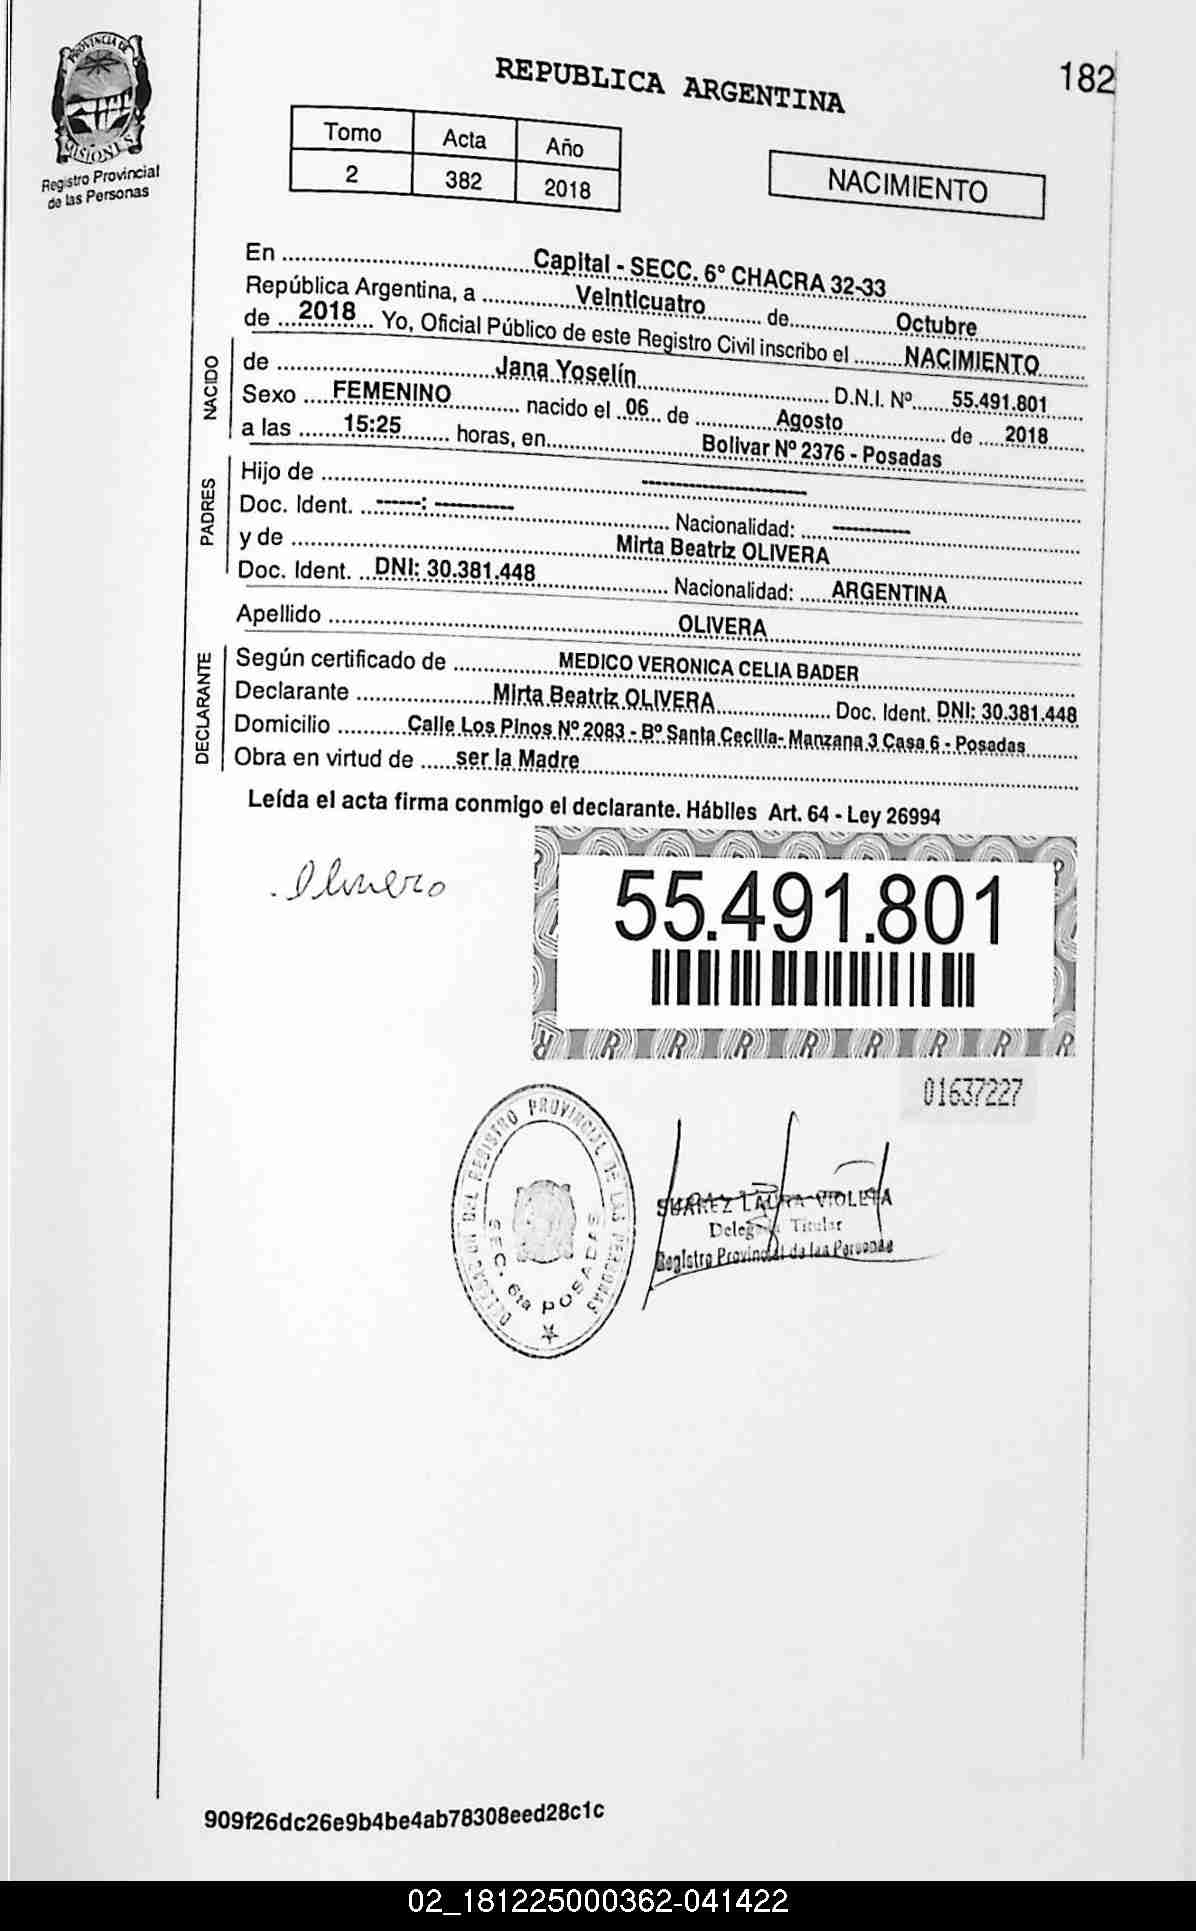 PROVINCIA DE
MISIONES
Registro Provincial
de las Personas
REPUBLICA ARGENTINA
182
Tomo Acta Año
2 382 2018
NACIMIENTO
En ........ Capital - SECC. 6° CHACRA 32-33 ........
República Argentina, a ........ Veinticuatro ........ de ........ Octubre ........
de .... 2018 .... Yo, Oficial Público de este Registro Civil inscribo el ........ NACIMIENTO ........
NACIDO
de ........ Jana Yoselín ........ D.N.I. Nº ...... 55.491.801 ......
Sexo .... FEMENINO ........ nacido el .. 06 .. de ........ Agosto ........ de .... 2018 ....
a las ...... 15:25 ...... horas, en ........ Bolivar Nº 2376 - Posadas ........
PADRES
Hijo de ........ --------------------
Doc. Ident. ........ ------: ---------- ........ Nacionalidad: .... ----------
y de ........ Mirta Beatriz OLIVERA ........
Doc. Ident. ... DNI: 30.381.448 ........ Nacionalidad: ..... ARGENTINA ........
Apellido ........ OLIVERA ........
DECLARANTE
Según certificado de ........ MEDICO VERONICA CELIA BADER ........
Declarante ........ Mirta Beatriz OLIVERA ........ Doc. Ident. DNI: 30.381.448
Domicilio ........ Calle Los Pinos Nº 2083 - Bº Santa Cecilia- Manzana 3 Casa 6 - Posadas ........
Obra en virtud de ..... ser la Madre ........
Leída el acta firma conmigo el declarante. Hábiles Art. 64 - Ley 26994
55.491.801
01637227
DELEGACION DEL REGISTRO PROVINCIAL DE LAS PERSONAS
SEC. 6ta POSADAS
SUAREZ LAURA VIOLETA
Delegada Titular
Registro Provincial de las Personas
909f26dc26e9b4be4ab78308eed28c1c
02_181225000362-041422